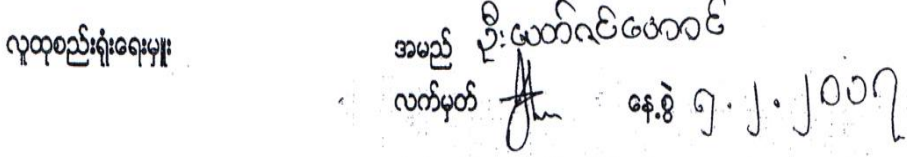 လူထုစည်းရုံးရေးမှူး
အမည် ဦးဇော်ဇင်အောင်
လက်မှတ်
နေ့စွဲ ၅.၂.၂၀၁၇